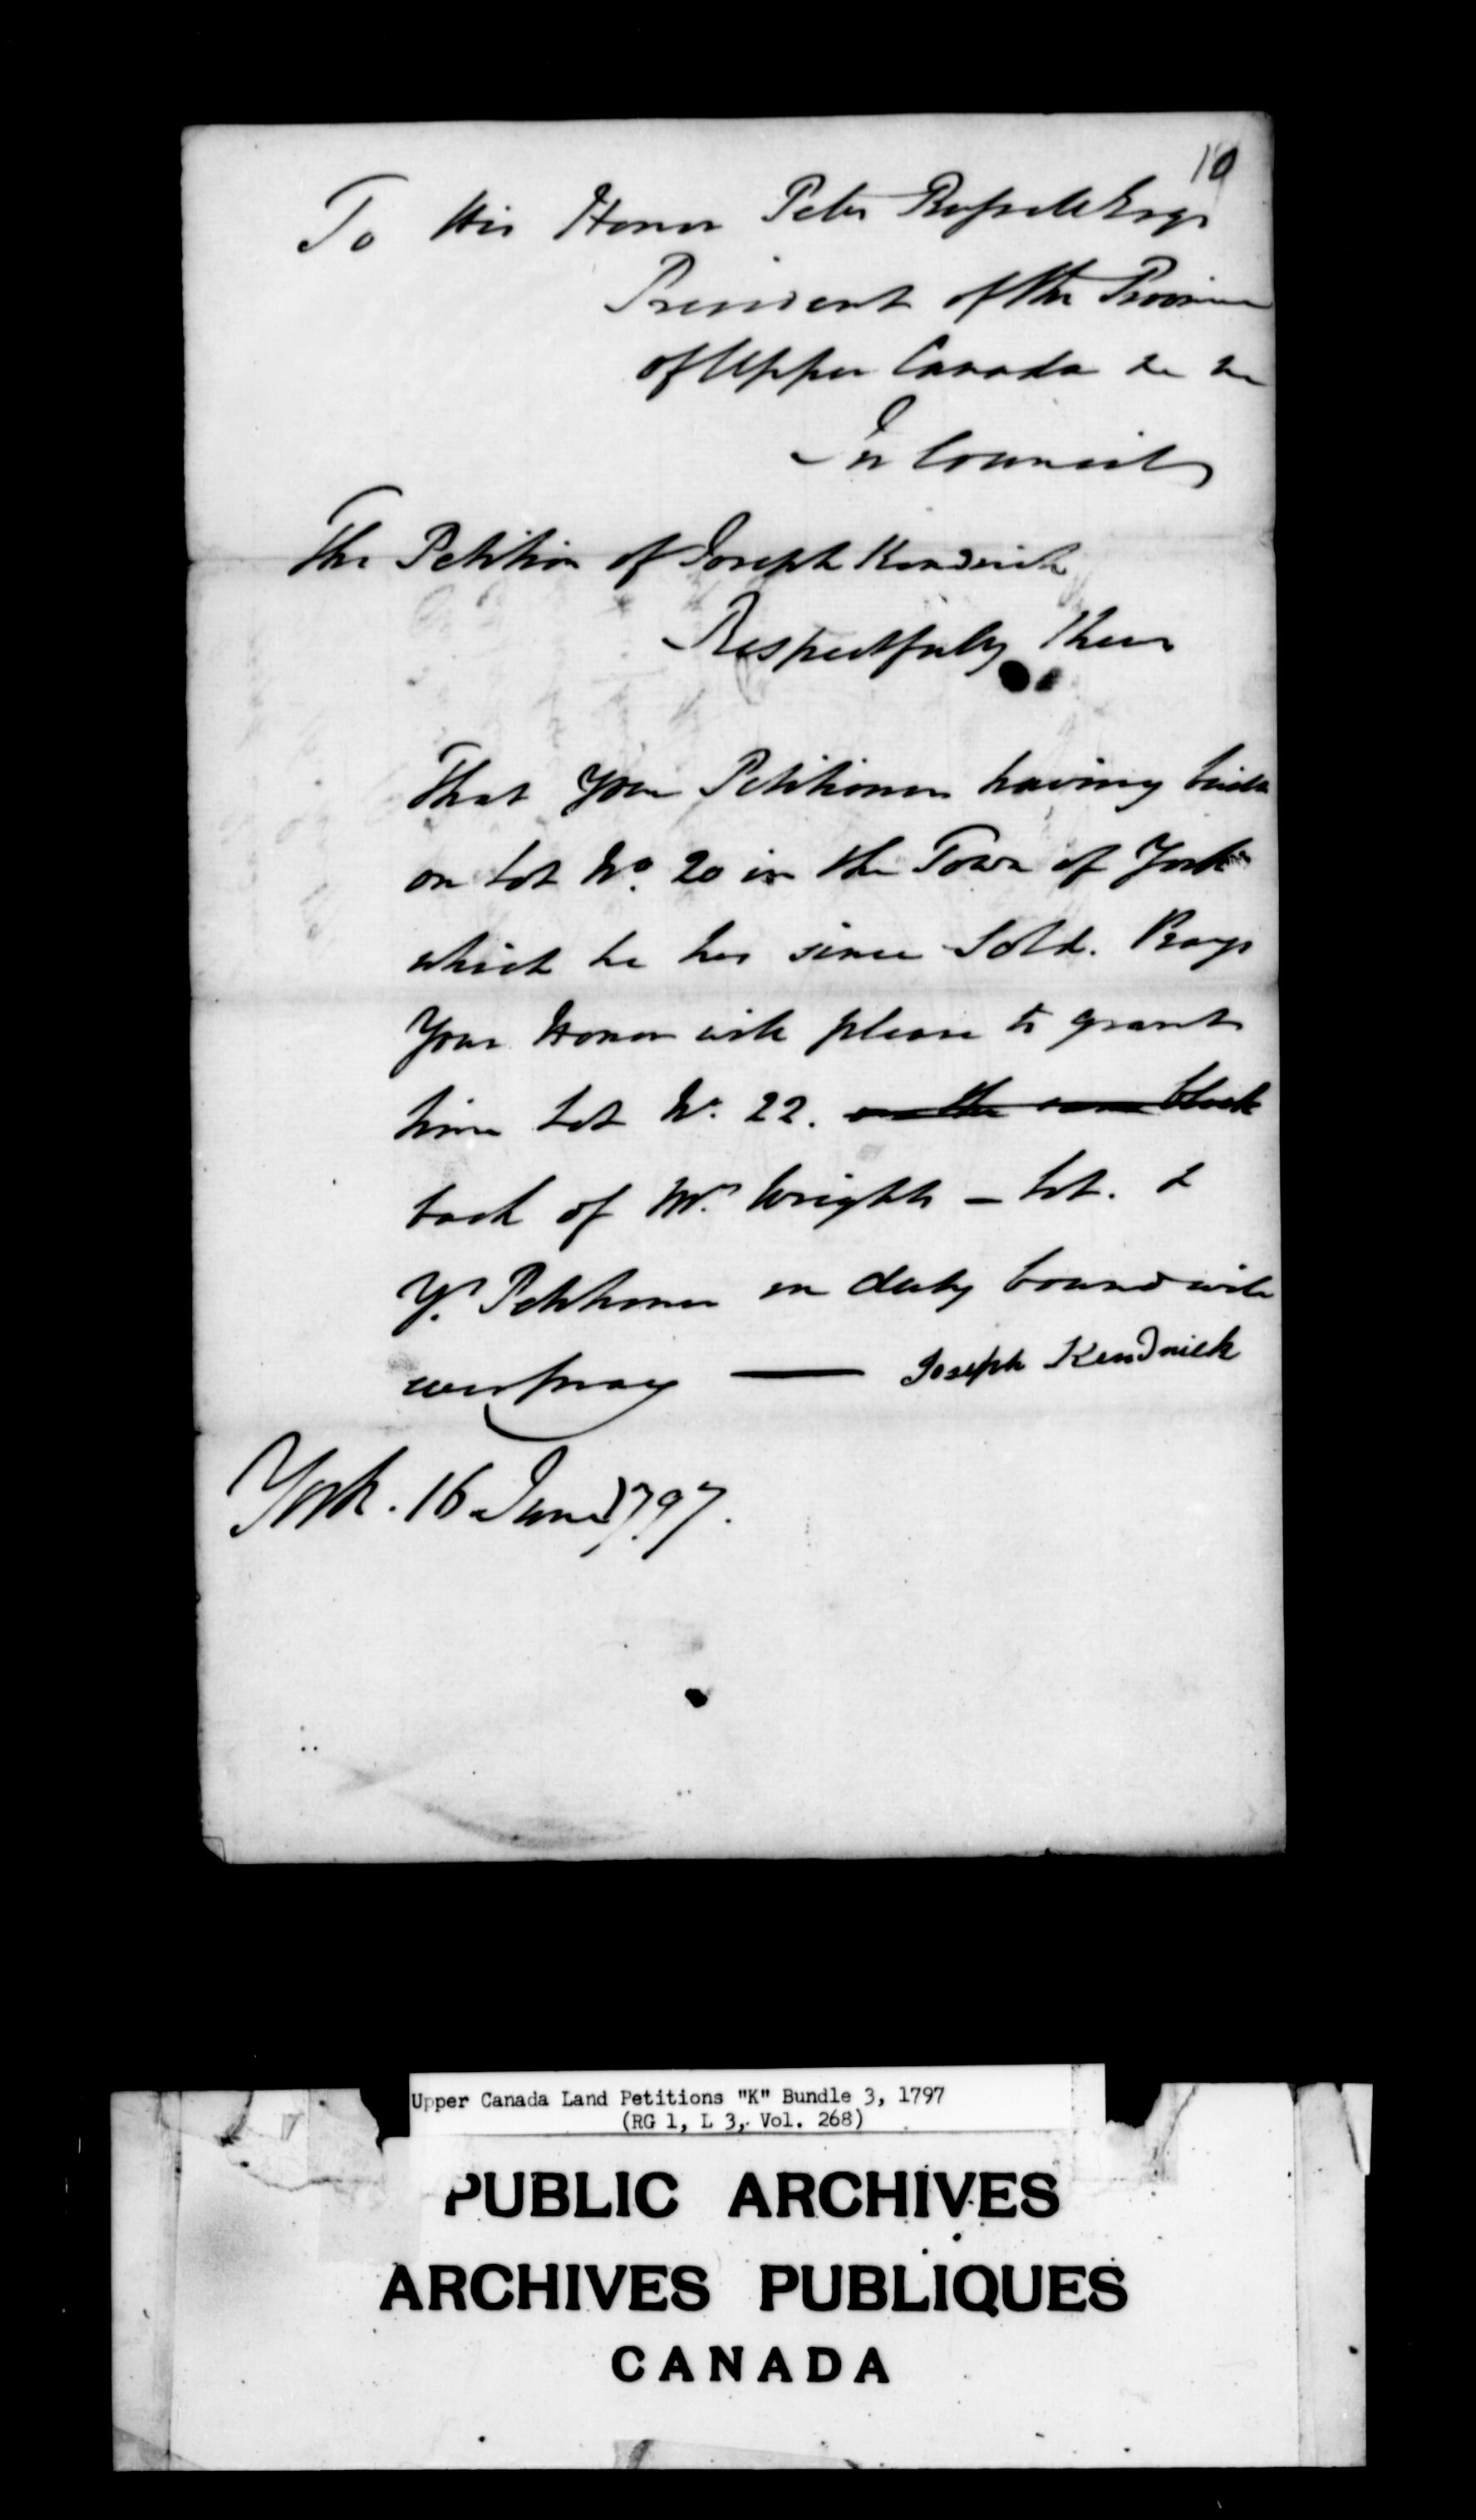 10
To His Honor Peter Russell Esqr
President of the Province
of Upper Canada &c &c
In Council
The Petition of Joseph Kendrick
Respectfully Shews
That Your Petitioner having built
on Lot No. 20 in the Town of York
which he has since Sold. Prays
Your Honor will please to grant
him Lot No. 22. on the same block
back of Mr. Wrights - Lot. &
Yr. Petitioner in duty bound will
ever pray — Joseph Kendrick
York. 16 June 1797.
Upper Canada Land Petitions "K" Bundle 3, 1797
(RG 1, L 3, Vol. 268)
PUBLIC ARCHIVES
ARCHIVES PUBLIQUES
CANADA